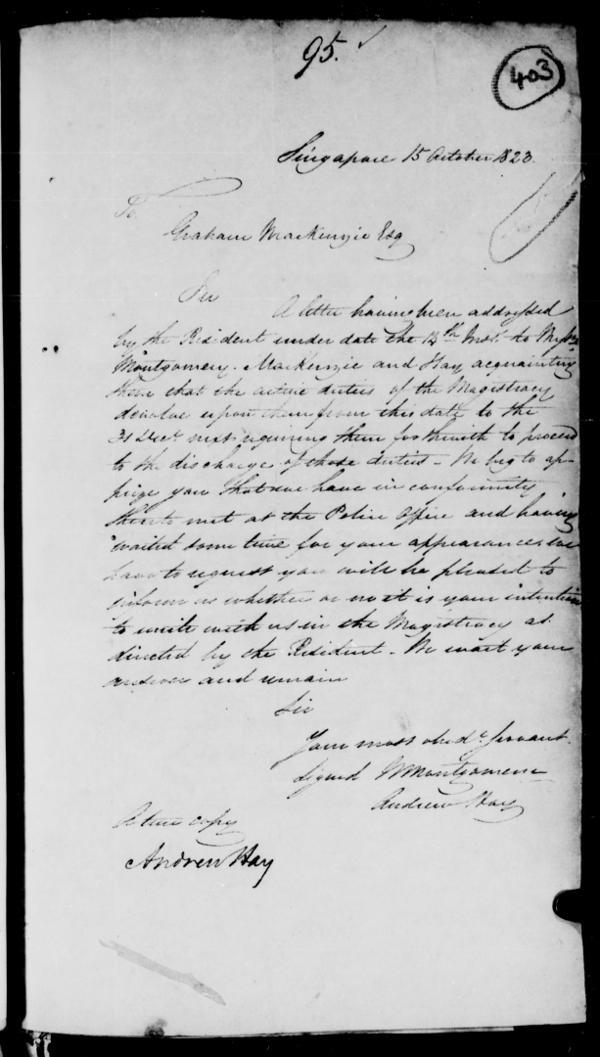 95.
403
Singapore 15 October 1823.
To
Graham MacKenzie Esq
Sir A letter having been addressed
by the Resident under date the 13th Inst. to Messrs
Montgomery. MacKenzie and Hay acquainting
them that the active duties of the Magistracy
devolve upon them from this date to the
31 Decr next requiring them forthwith to proceed
to the discharge of those duties – We beg to ap-
prize you that we have in conformity
thereto met at the Police Office and having
waited some time for your appearance, we
have to request you will be pleased to
inform us whether or no it is your intention
to unite with us in the Magistracy as
directed by the Resident – We wait your
answer and remain
Sir
Your most obedt Servant.
Signed Montgomerie
Andrew Hay
A true copy
Andrew Hay